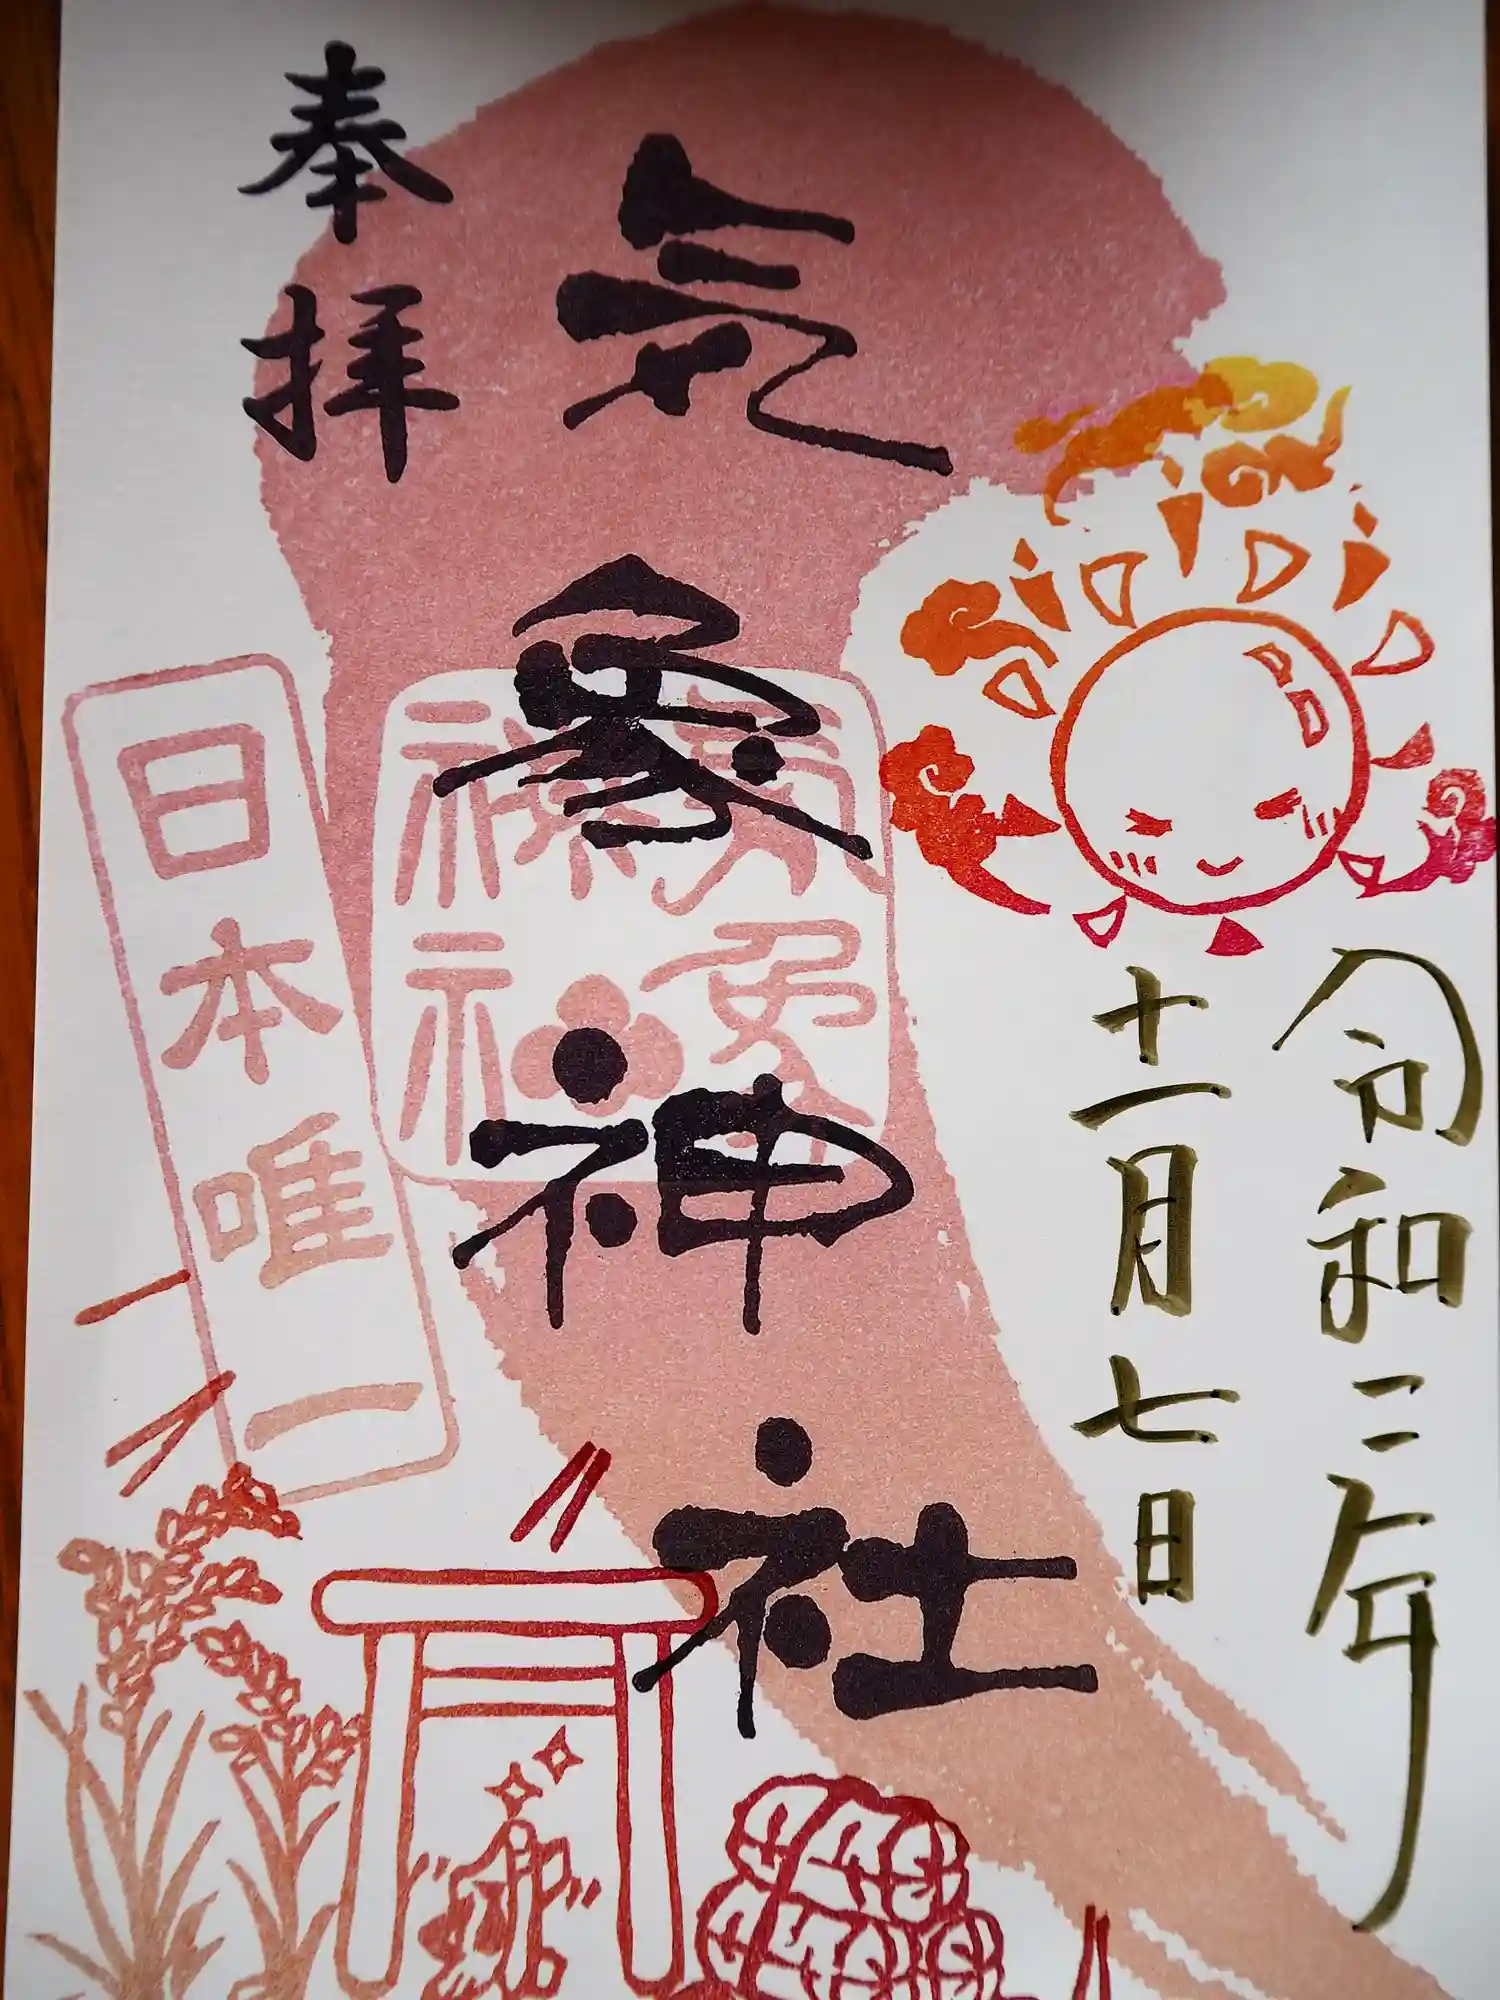 令和二年
十一月七日
気象神社
奉拝
日本唯一